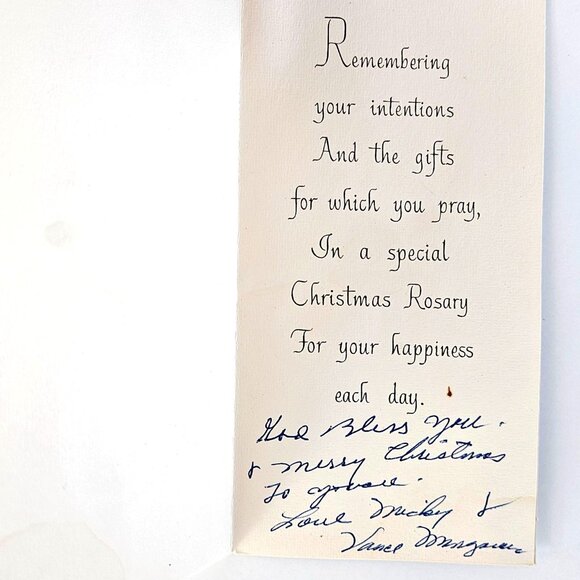 Remembering
your intentions
And the gifts
for which you pray,
In a special
Christmas Rosary
For your happiness
each day.
God Bless You.
& Merry Christmas
To you
Love Micky &
Vance